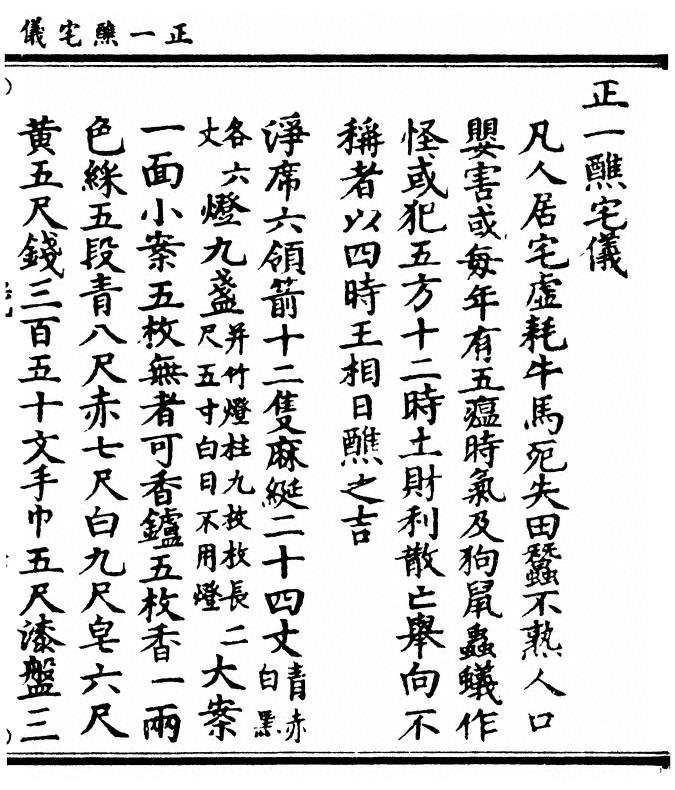 正一醮宅儀
正一醮宅儀
凡人居宅虛耗牛馬死失田蠶不熟人口
嬰害或每年有五瘟時氣及狗鼠蟲蟻作
怪或犯五方十二時土財利散亡舉向不
稱者以四時王相日醮之吉
淨席六領箭十二隻麻綖二十四丈青赤白黑
各六丈燈九盞并竹燈柱九枚枚長二尺五寸白日不用燈大案
一面小案五枚無者可香鑪五枚香一兩
色綵五段青八尺赤七尺白九尺皂六尺
黃五尺錢三百五十文手巾五尺漆盤三